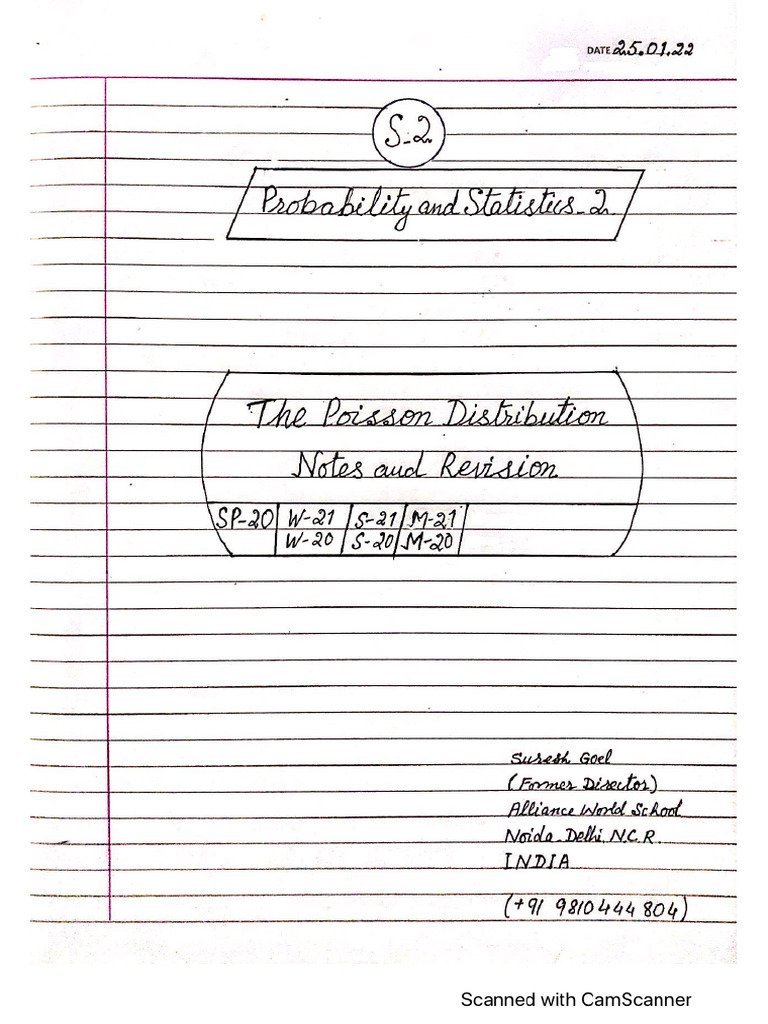 DATE 25.01.22
S-2
Probability and Statistics-2
The Poisson Distribution
Notes and Revision
SP-20 W-21 S-21 M-21
W-20 S-20 M-20
Suresh Goel
(Former Director)
Alliance World School
Noida Delhi N.C.R.
INDIA
(+91 9810444804)
Scanned with CamScanner